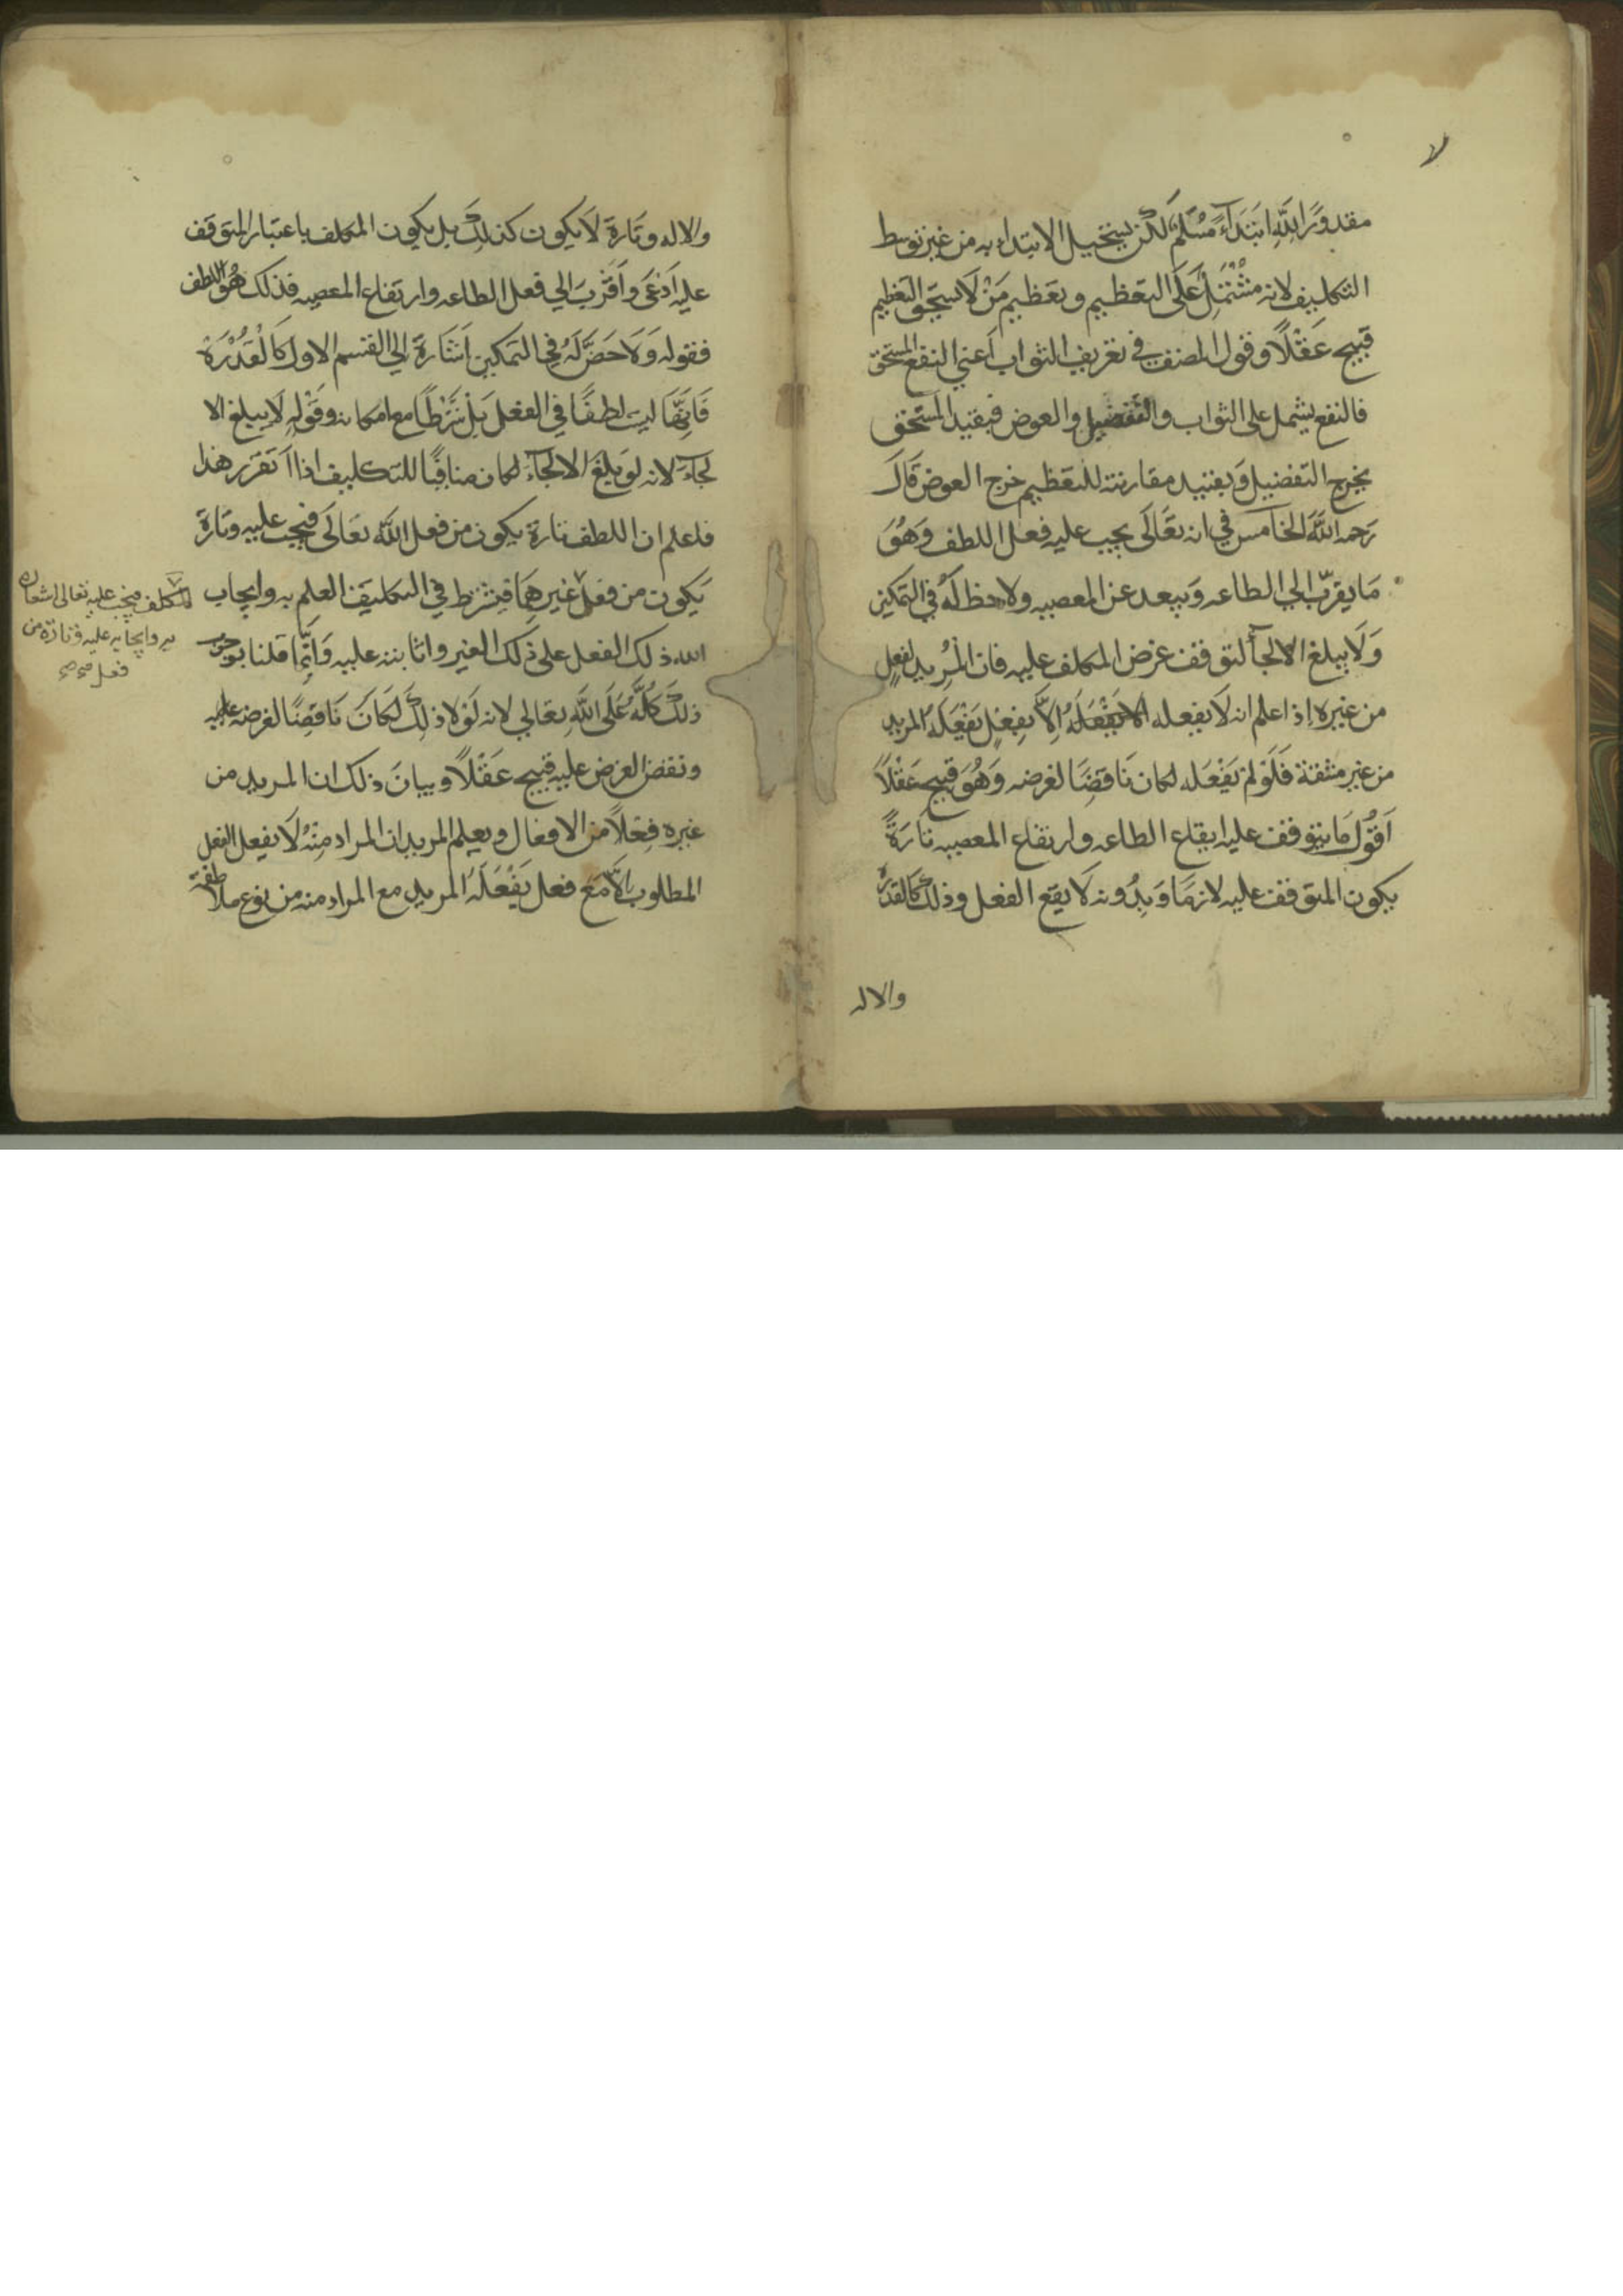 مقدورًا لله ابتدَآءً مُسَلَّم لكن يستحيل الابتداء به من غير توسط
التكليف لانه مشتمل عَلَى التعظيم وتعظيم مَنْ لَا يستحق التعظيم
قبيح عَقْلًا وقول المصنف في تعريف الثواب اعني النفع المستحق
فالنفع يشمل على الثواب والتفضيل والعوض فبقيد المستحق
يخرج التفضيل وبقيد مقارنته للتعظيم خرج العوض قَالَ
رَحمه اللَّه الخامس في انه تعَالَى يجب عليه فعل اللطف وَهُوَ
مَا يقرّب الي الطاعه وَيبعد عن المعصيه ولا حظ لَهُ في التمكين
وَلَا يبلغ الالجآ لتوقف غرض المكلف عليه فان المُريد لفعلٍ
من غيره اذا علم انه لَا يفعله الا يَفْعَلَهُ اِلَّا بِفِعْلٍ يَفْعَلَهُ المريد
من غير مشقة فَلَوْ لَمْ يَفْعَله لكان نَاقضًا لغرضه وَهُوَ قبيح عَقْلًا
اَقُولُ مَا يتوقف عليه ايقاع الطاعه وارتفاع المعصيه تَارَةً
يكون المتوقف عليه لازمًا وَبِدُونه لَا يقع الفعل وذلك كالقدرة
والاله
والاله وتَارَة لَا يكون كذلِكَ بل يكون المكلف باعتبار المتوقف
عليه اَدْعَى وَاَقْرَبَ الي فعل الطاعه وارتفاع المعصيه فذلك هُوَ اللطف
فقوله وَلَا حَضَّ لَهُ فِي التمكين اَشَارَة الي القسم الاول كَالْقُدْرَة
فَاِنَّهَا ليت لطفًا في الفعل بَلْ شَرْطًا مع امكانه وقَوْله لَا يبلغ الا
لجآءَ لانه لو بَلَغَ الالجآءَ لكان منافيًا للتكليف اذا اَ تقرر هذا
فاعلم ان اللطف تارة يكون من فعل اللَّه تعَالَى فيجب عليه وتَارَة
يَكون من فعل غيرهِمَا فيشترط في التكليف العلم به وايجاب
الله ذلك الفعل على ذلك الغير واثابته عليه وَاِنَّمَا قلنا بوجوب
ذلكَ كُلَّهُ عَلَى اللَّهِ تعالي لانه لَوْلا ذلِكَ لَكَانَ نَاقضًا لغرضه عليه
ونقض الغرض عليه قبيح عَقْلًا وبيانَ ذلك ان المريد من
غيره فِعْلًا من الافعال ويعلم المريد ان المراد مِنْهُ لَا يفعل الفعل
المطلوب اِلَّا مَعَ فعل يَفْعَلَهُ المريد مع المراد منه من نوع ملاطفة
المكلف فيجب عليه تعالى اشعاره
به وايجابه عليه وتارة من
فعل صح صح